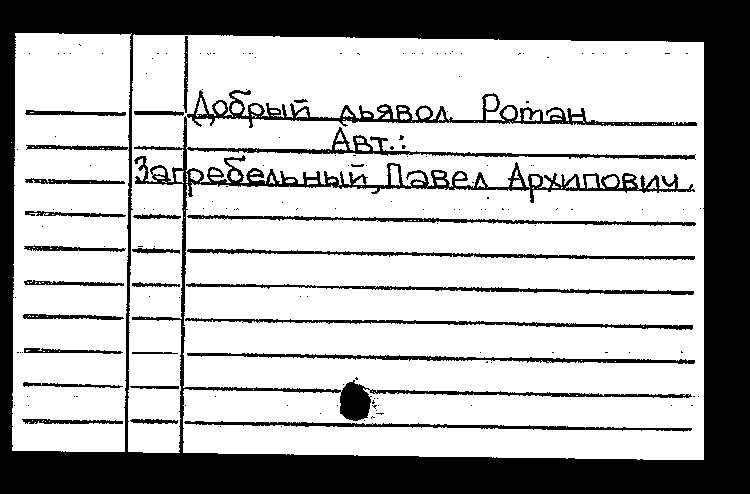 Добрый дьявол. Роман.
Авт.:
Загребельный, Павел Архипович.